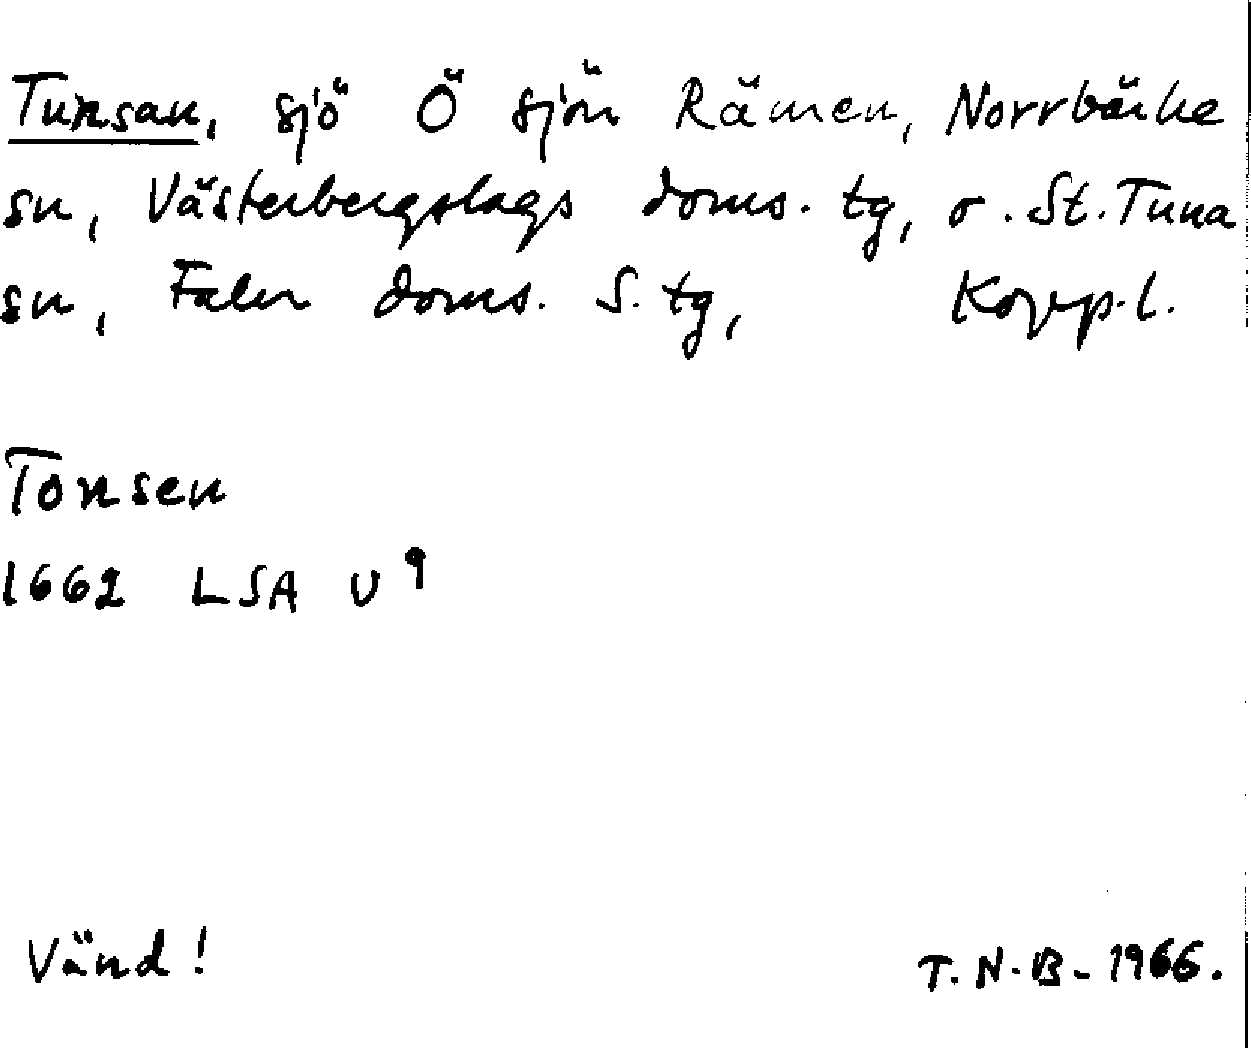 Tunsan, sjö Ö sjön Rämen, Norrbärke
sn, Västerbergslags doms. tg, o. St. Tuna
sn, Falu doms. S. tg, Kopp. l.
Tonsen
1662 LSA U 9
Vänd!
T. N. B. 1966.